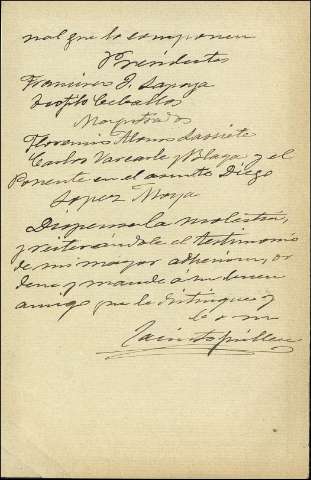 nal que lo componen
Presidentes
Francisco J. Sapaya
Teofilo Ceballos
Magistrados
Florencio Alonso Lasiete
Carlos Vascarle y Blaya y el
Ponente en el asunto Diego
Lopez Moya
Dispense la molestia,
y reiterandole el testimonio
de mi mayor adhesion, or
dene y mande á su buen
amigo que le distingue y
b s m